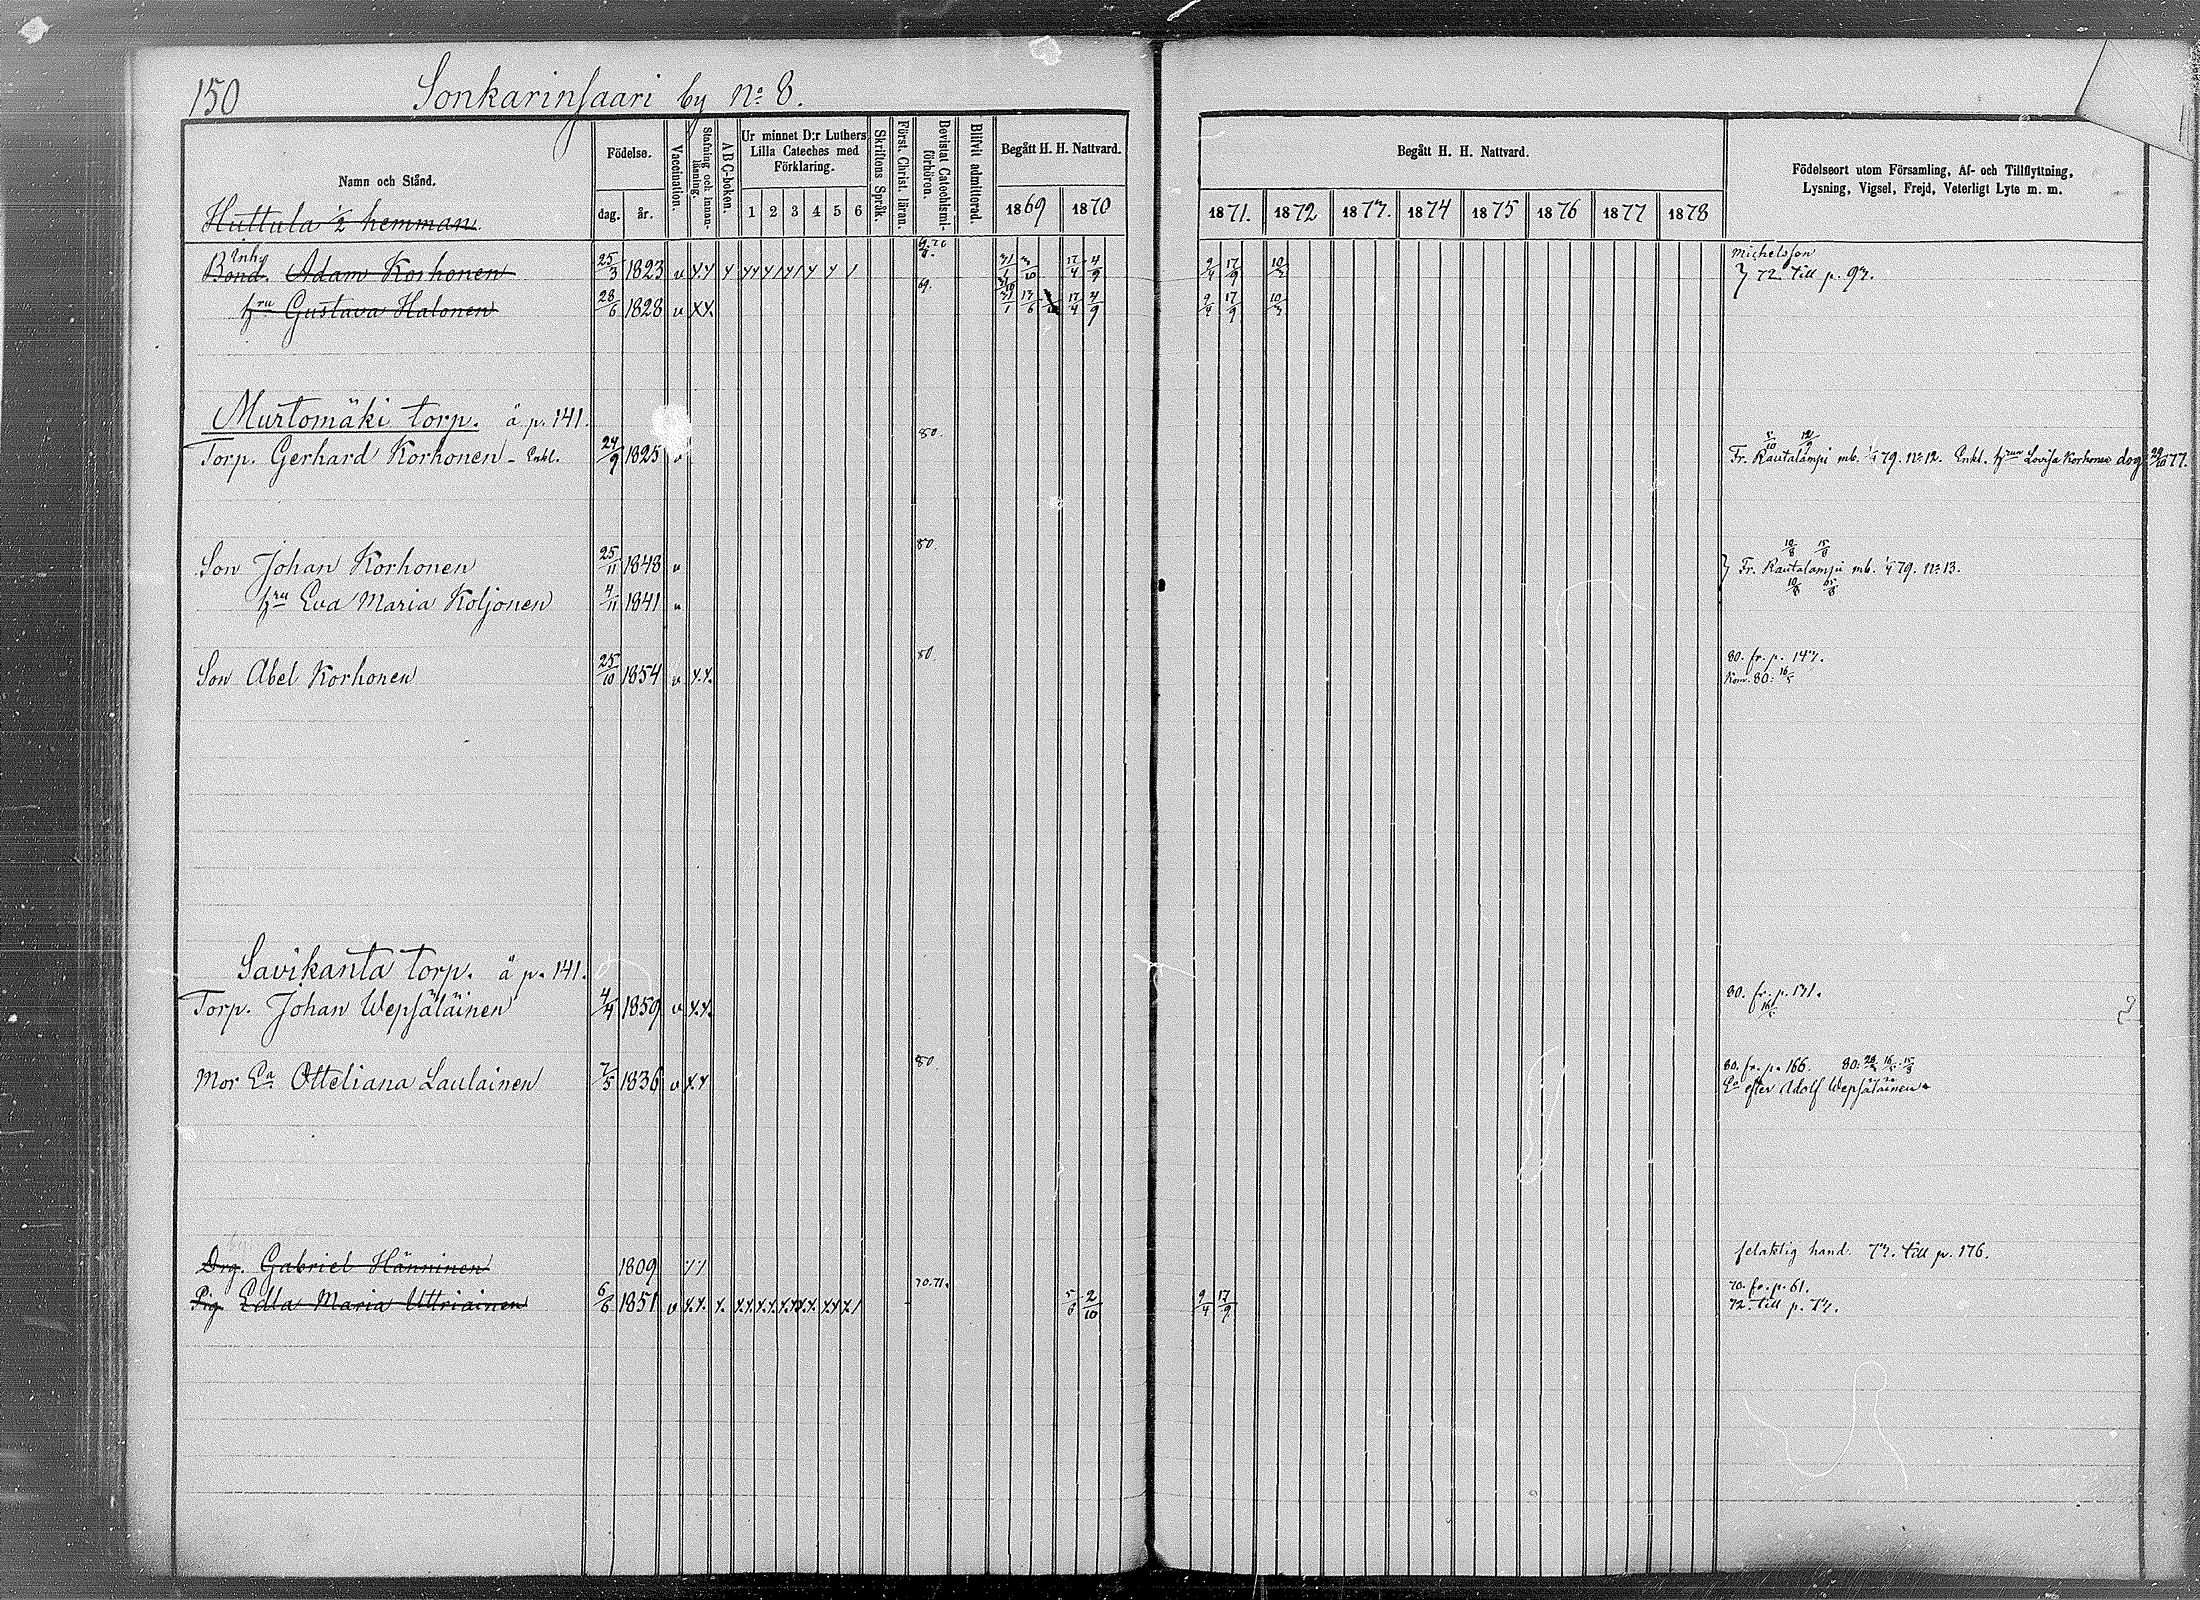 150 Sonkarinsaari by No 8.
Namn och Stånd.
Födelse.
dag. år.
Vaccination.
Stafning och innan-läsning.
A B C-boken.
Ur minnet D:r Luthers Lilla Cateches med Förklaring.
1 2 3 4 5 6
Skriftens Språk.
Först. Christ. läran.
Bevistat Catechismi-förhören.
Blifvit admitterad.
Begått H. H. Nattvard.
1869 1870
Begått H. H. Nattvard.
1871. 1872 1873. 1874 1875 1876 1877 1878
Födelseort utom Församling, Af- och Tillflyttning,
Lysning, Vigsel, Frejd, Veterligt Lyte m. m.
Huttula 1/2 hemman.
Inh.
Bond. Adam Korhonen 25/3 1823 v 17/4 4/9 9/4 17/9 10/3 Michelsson
} 72. till p. 93.
hru Gustava Halonen 28/6 1828 v xx. 69. 17/4 4/9 9/4 17/9 10/3
Murtomäki torp. å p. 141.
Torp. Gerhard Korhonen - Enkl. 24/9 1825 v 80. Fr. Rautalampi mb. 79. No 12. Enkl. hrun Lovisa Korhonen dog 29/10 77.
Son Johan Korhonen 25/11 1848 v 80. } Fr. Rautalampi mb. 79. No 13.
hru Eva Maria Koljonen 4/11 1841 v
Son Abel Korhonen 25/10 1854 v x.x. 80. 80. fr. p. 143.
Kom. 80: 16/5
Savikanta torp. å p. 141.
Torp. Johan Wepsäläinen 4/4 1859 v x.x. 80. fr. p. 131.
Mor Ea Otteliana Laulainen 7/5 1836 v x.x 80 80. fr. p. 166. 80:
Ea efter Adolf Wepsäläinen.
Drg. Gabriel Hänninen 1809 felaktig hand. 73. till p. 176.
Pig. Edla Maria Uttriainen 6/6 1851 v x.x. x. 70.71. 5/6 2/10 9/4 17/9 70. fr. p. 61.
72. till p. 73.